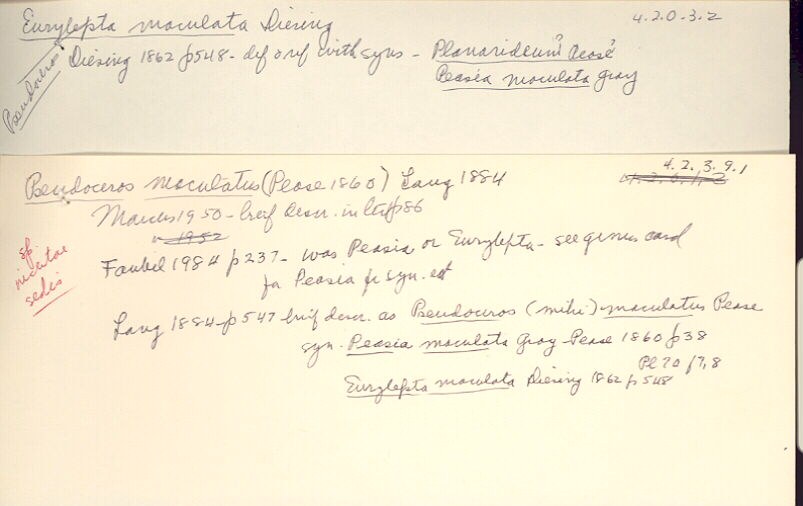 Eurylepta maculata Diesing 4.2.0.3.2
Pseudoceros
Diesing 1862 p548 - def & ref with syns - Planarideum? Pease?
Peasia maculata Gray
Pseudoceros maculatus (Pease 1860) Lang 1884 4.2.3.9.1
Marcus 1950 - breif descr. in list p86
" 1952
sp
incertae
sedis
Faubel 1984 p237 - was Peasia or Eurylepta - see genus card
for Peasia for syn. est
Lang 1884 p547 brief descr. as Pseudoceros (mihi) maculatus Pease
syn. Peasia maculata Gray - Pease 1860 p38
Pl 70 f7,8
Eurylepta maculata Diesing 1862 p548